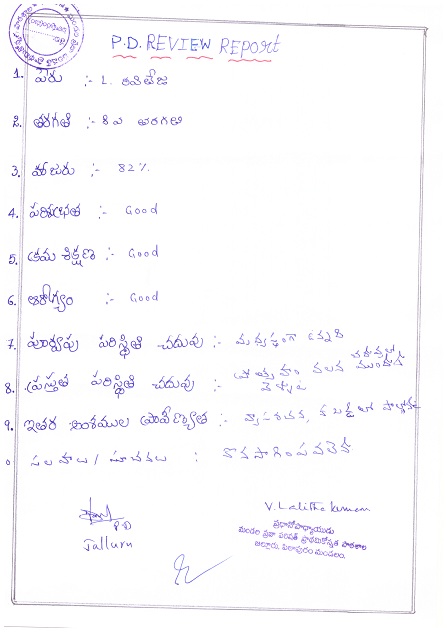 P.D. REVIEW REPORT
1. పేరు :- L. రవితేజ
2. తరగతి :- 8 వ తరగతి
3. హాజరు :- 82%
4. పరిశుభ్రత :- Good
5. క్రమ శిక్షణ :- Good
6. ఆరోగ్యం :- Good
7. పూర్వపు పరిస్థితి చదువు :- మధ్యస్థంగా ఉన్నది
8. ప్రస్తుత పరిస్థితి చదువు :- ప్రోత్సాహం వలన చదువులో ముందంజ
9. ఇతర అంశముల ప్రావీణ్యత :- వ్యాసరచన, కబడ్డీలో
సలహాలు / సూచనలు : కొనసాగింపవలెను
P.D
Jalluru
V. Lalitha Kumari
ప్రధానోపాధ్యాయుడు
మండల ప్రజా పరిషత్ ప్రాథమికోన్నత పాఠశాల
జల్లూరు, పిఠాపురం మండలం.